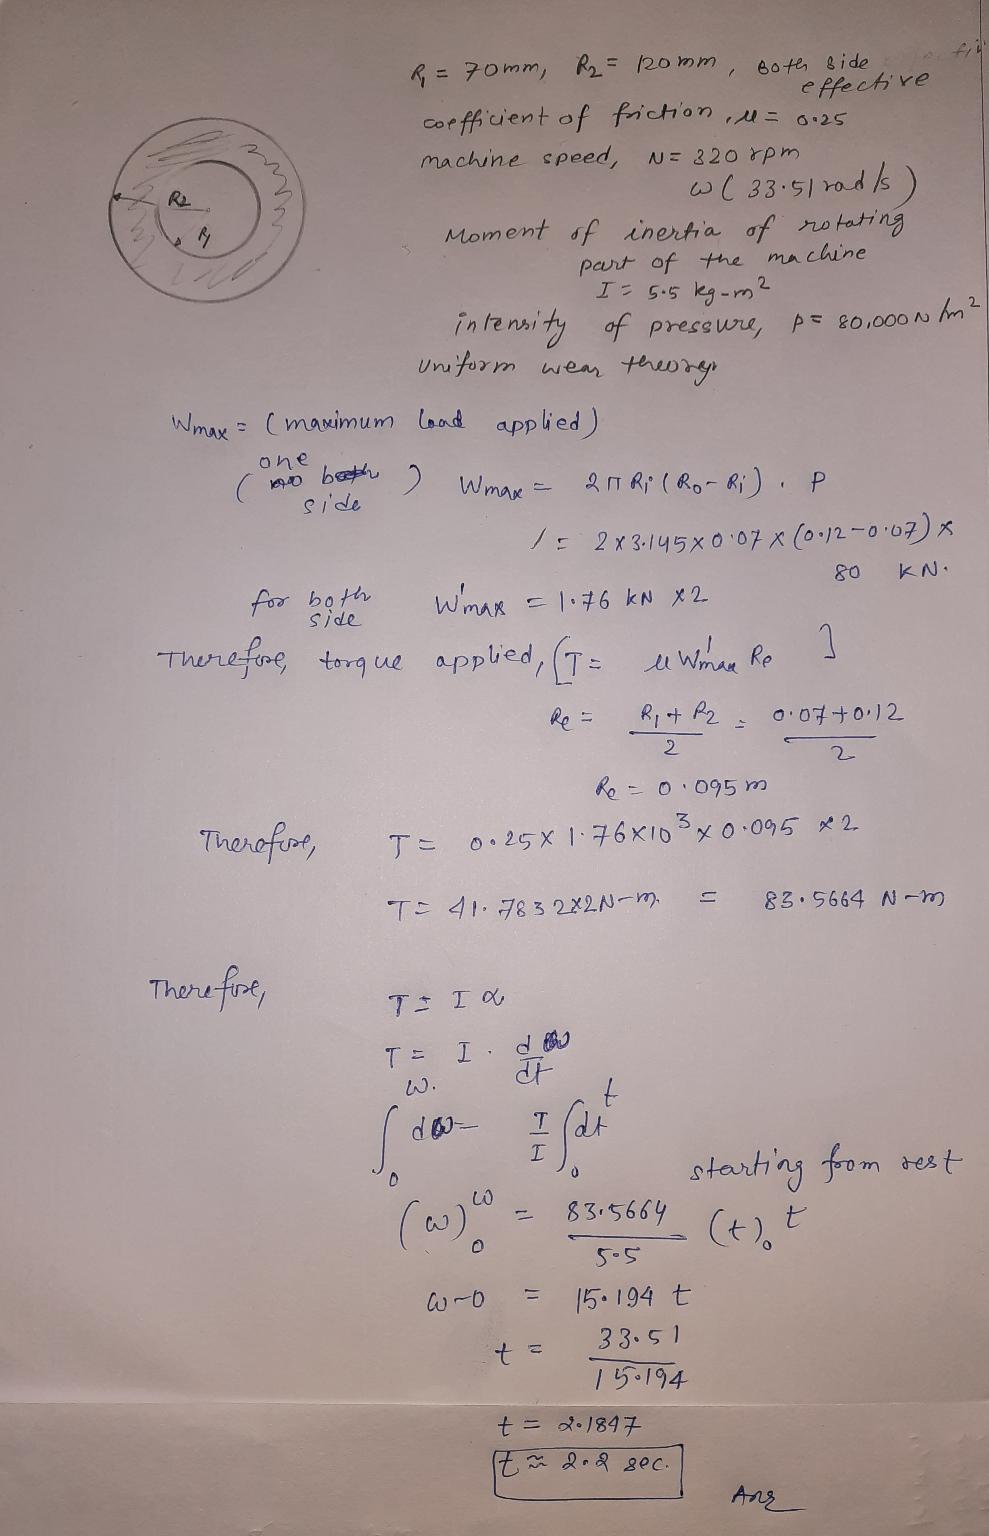 R1 = 70mm, R2 = 120mm, Both side
effective
coefficient of friction, μ = 0.25
machine speed, N = 320 rpm
ω ( 33.51 rad/s )
Moment of inertia of rotating
part of the machine
I = 5.5 kg-m²
intensity of pressure, p = 80,000 N/m²
Uniform wear theory
R2
R1
Wmax = (maximum load applied)
(one side) Wmax = 2π Ri (Ro - Ri) . P
= 2 × 3.145 × 0.07 × (0.12 - 0.07) ×
80 KN.
for both side W'max = 1.76 kN × 2
Therefore, torque applied, [T = μ W'max Re ]
Re = (R1 + R2)/2 = (0.07 + 0.12)/2
Re = 0.095 m
Therefore, T = 0.25 × 1.76 × 10³ × 0.095 × 2
T = 41.7832×2 N-m. = 83.5664 N-m
Therefore, T = I α
T = I . dω/dt
∫₀^ω dω = T/I ∫₀^t dt
starting from rest
(ω)₀^ω = 83.5664/5.5 (t)₀^t
ω-0 = 15.194 t
t = 33.51/15.194
t = 2.1847
t ≈ 2.2 sec.
Ans